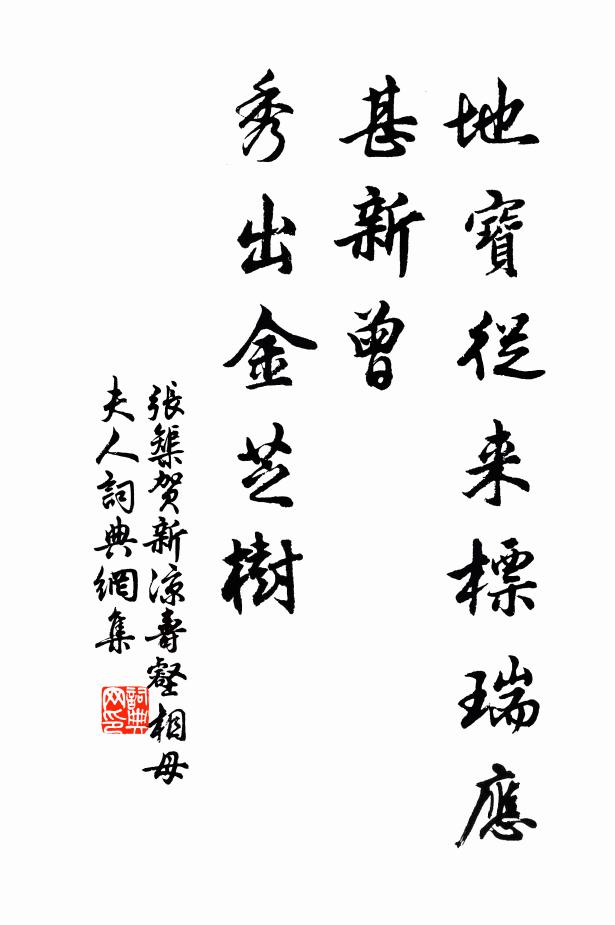 地寶從来標瑞應
甚新曾
秀出金芝樹
張榘賀新凉壽壑相母
夫人詞典網集
詞典网印